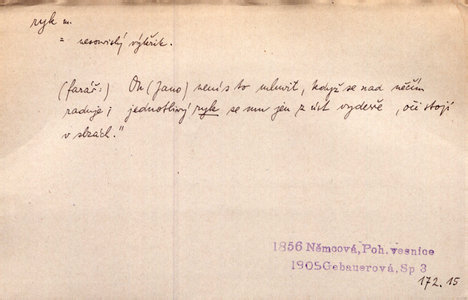 ryk m.
= nesouvislý výkřik.
(farář:) On (Jano) není s to mluvit, když se nad něčím
raduje; jednotlivý ryk se mu jen z úst vydeře, oči stojí
v slzách."
1856 Němcová, Poh. vesnice
1905 Gebauerová, Sp 3
172.15